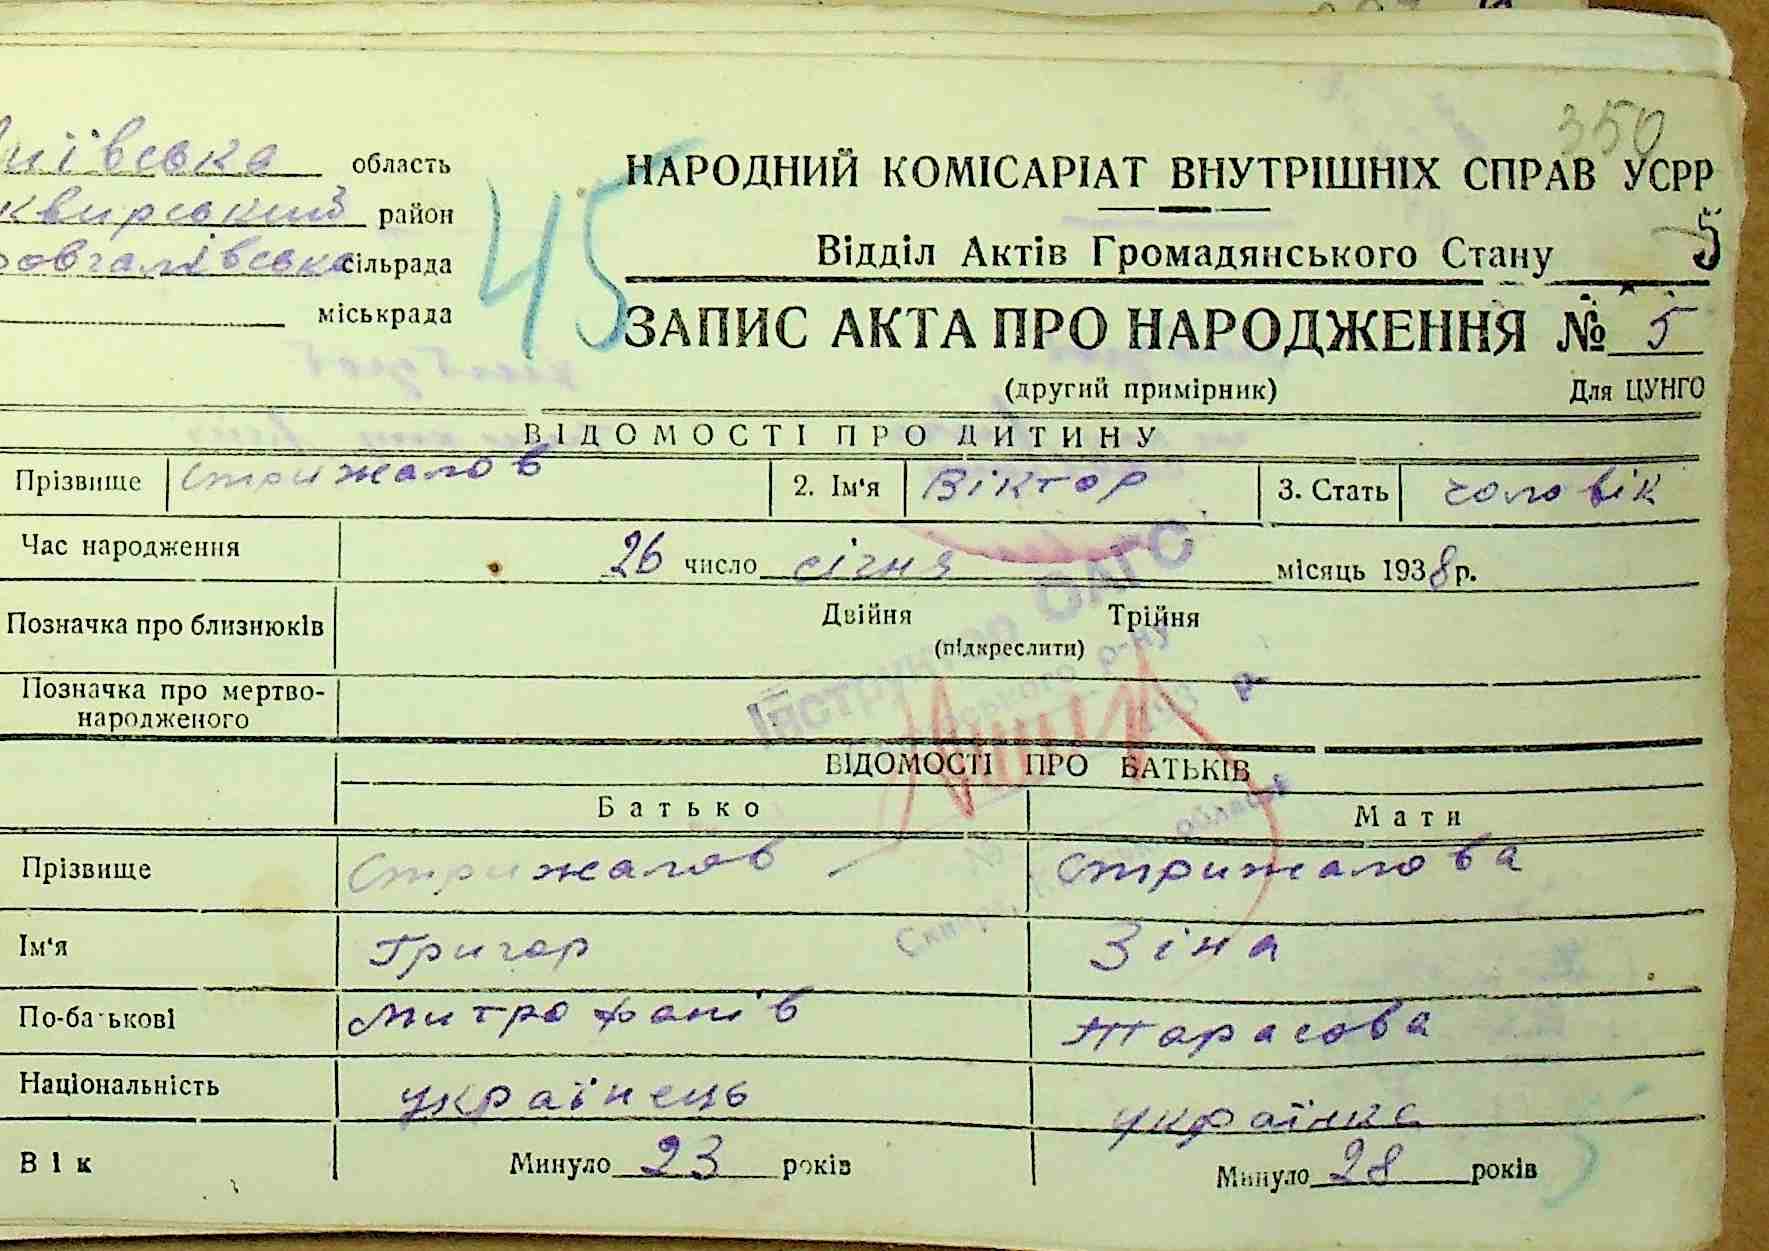 350
иївська область
квирський район
овгалівська сільрада
міськрада
45
НАРОДНИЙ КОМІСАРІАТ ВНУТРІШНІХ СПРАВ УСРР
Відділ Актів Громадянського Стану 5
ЗАПИС АКТА ПРО НАРОДЖЕННЯ № 5
(другий примірник) Для ЦУНГО
ВІДОМОСТІ ПРО ДИТИНУ
Прізвище Стрижалов 2. Ім'я Віктор 3. Стать чоловік
Час народження 26 число січня місяць 1938 р.
Позначка про близнюків Двійня Трійня
(підкреслити)
Позначка про мертво-
народженого
Інструктор ОАГС
ського р-ну
193 р.
ВІДОМОСТІ ПРО БАТЬКІВ
Батько Мати
Прізвище Стрижалов Стрижалова
Ім'я Григор Зіна
По-батькові Митрофанів Тарасова
Національність українець українка
Вік Минуло 23 років Минуло 28 років